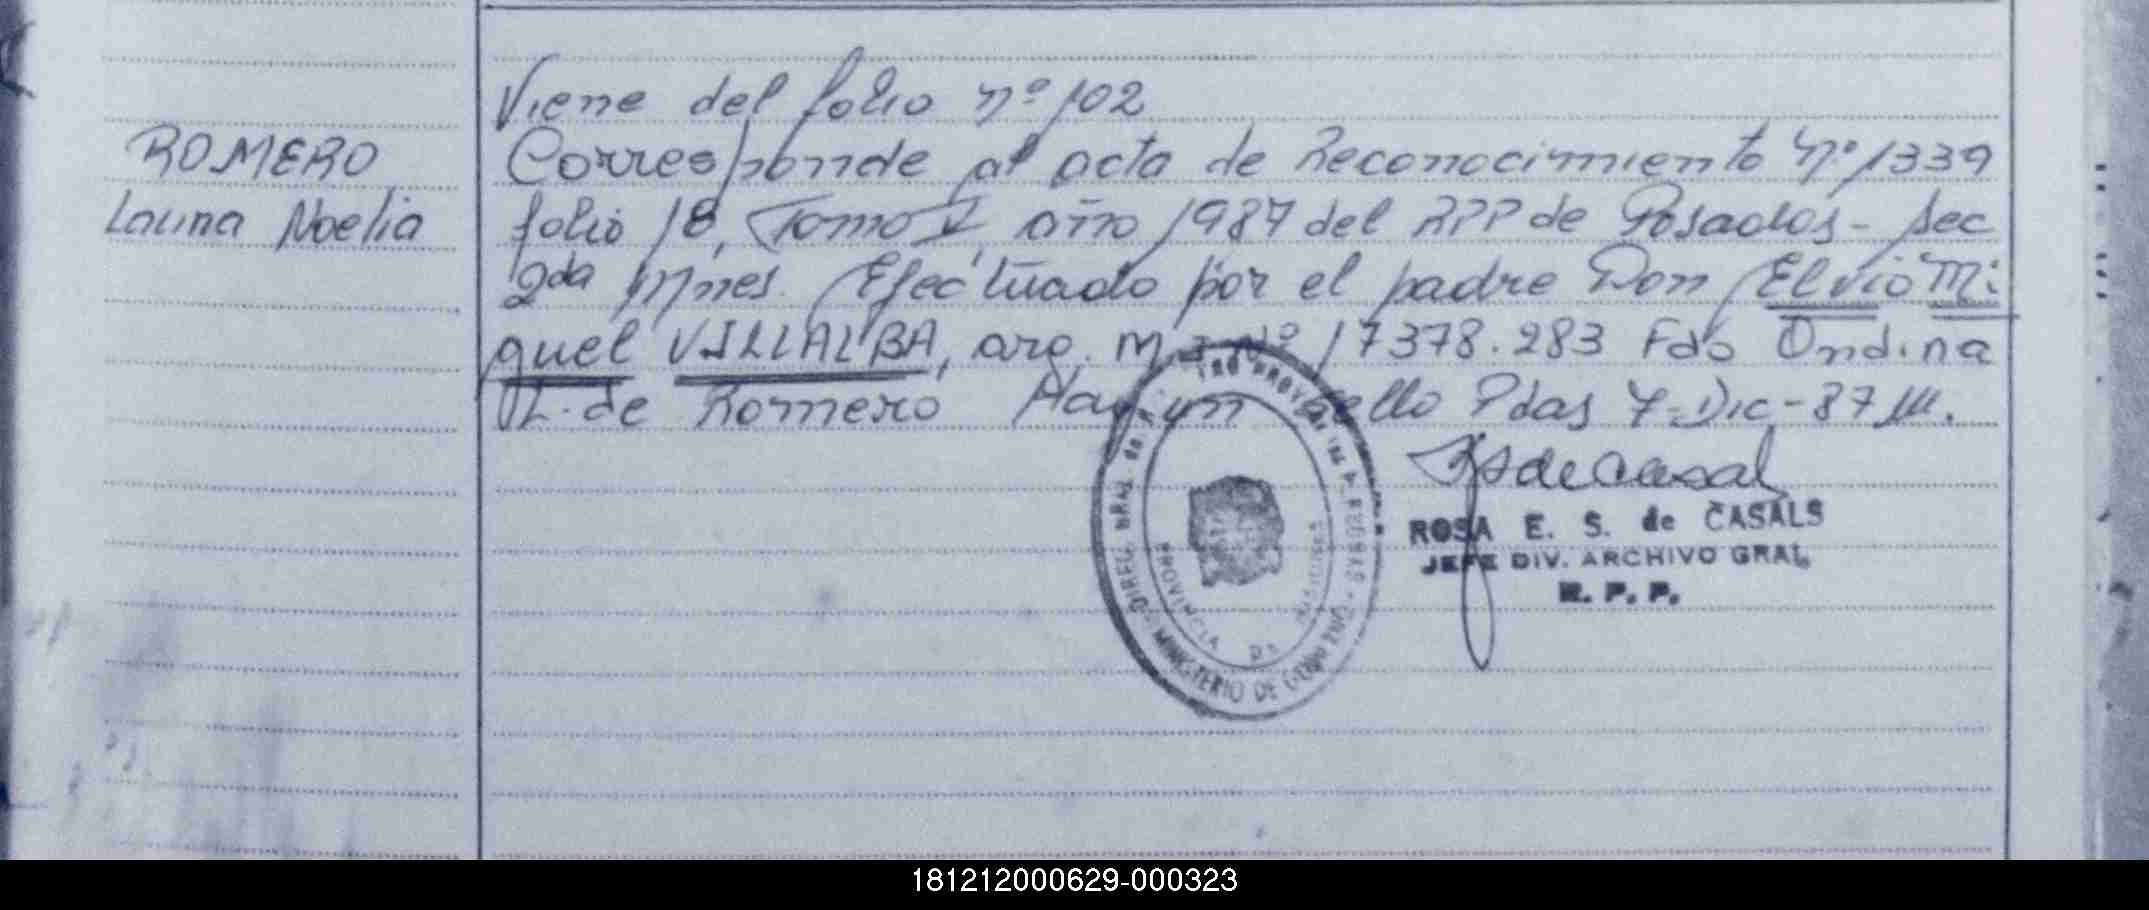 Viene del folio nº 102
ROMERO
Launa Noelia
Corresponde al acta de Reconocimiento Nº 1339
folio 18, Tomo V año 1987 del RPP de Posadas - Sec
2da Mnes. Efectuado por el padre Don Elvio Mi
guel VILLALBA, arg. M.I. Nº 17378.283 Fdo Ondina
de Romero Hay un sello Pdas 7-Dic-87
ROSA E. S. de CASALS
JEFE DIV. ARCHIVO GRAL.
R. P. P.
MINISTERIO DE
PROVINCIA DE MISIONES
181212000629-000323